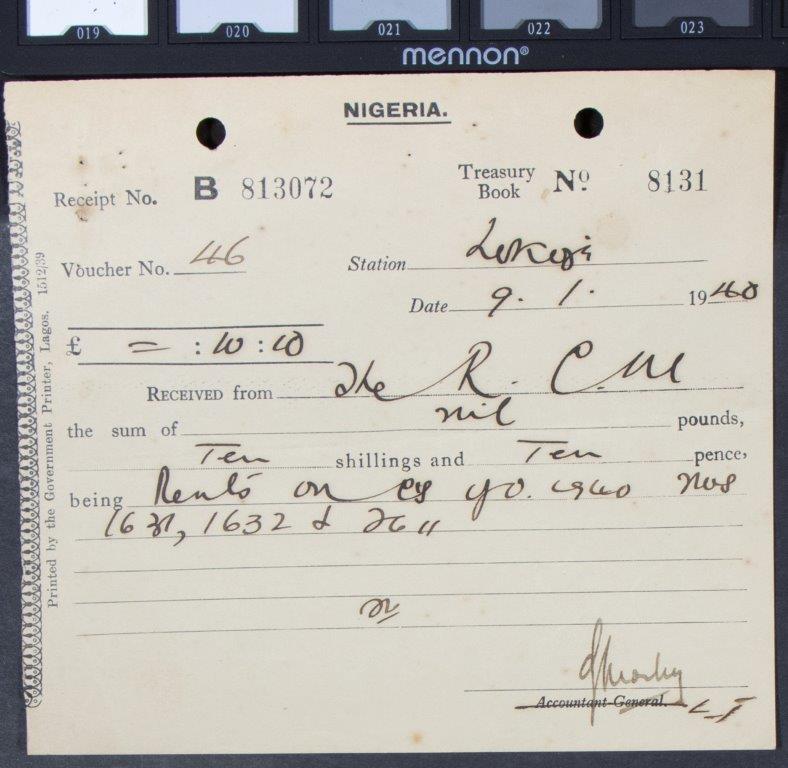 019 020 021 022 023
mennon®
NIGERIA.
Receipt No. B 813072
Treasury Book No. 8131
Voucher No. 46
Station Lokoja
Date 9. 1. 1940
£ = : 10 : 10
RECEIVED from The R. C. M
the sum of nil pounds,
Ten shillings and Ten pence,
being Rents on yo. 1940 Nos
1631, 1632 &
Accountant-General. L T
Printed by the Government Printer, Lagos. 1512/39